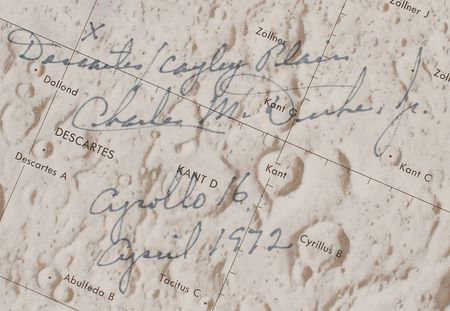 Zöllner J
Zöllner
X
Descartes/Cayley Plain
Zöl
Dollond
Kant G
Charles M. Duke, Jr.
DESCARTES
Descartes A
KANT D
Kant
Kant C
Apollo 16
April 1972
Cyrillus B
Abulfeda B
Tacitus C